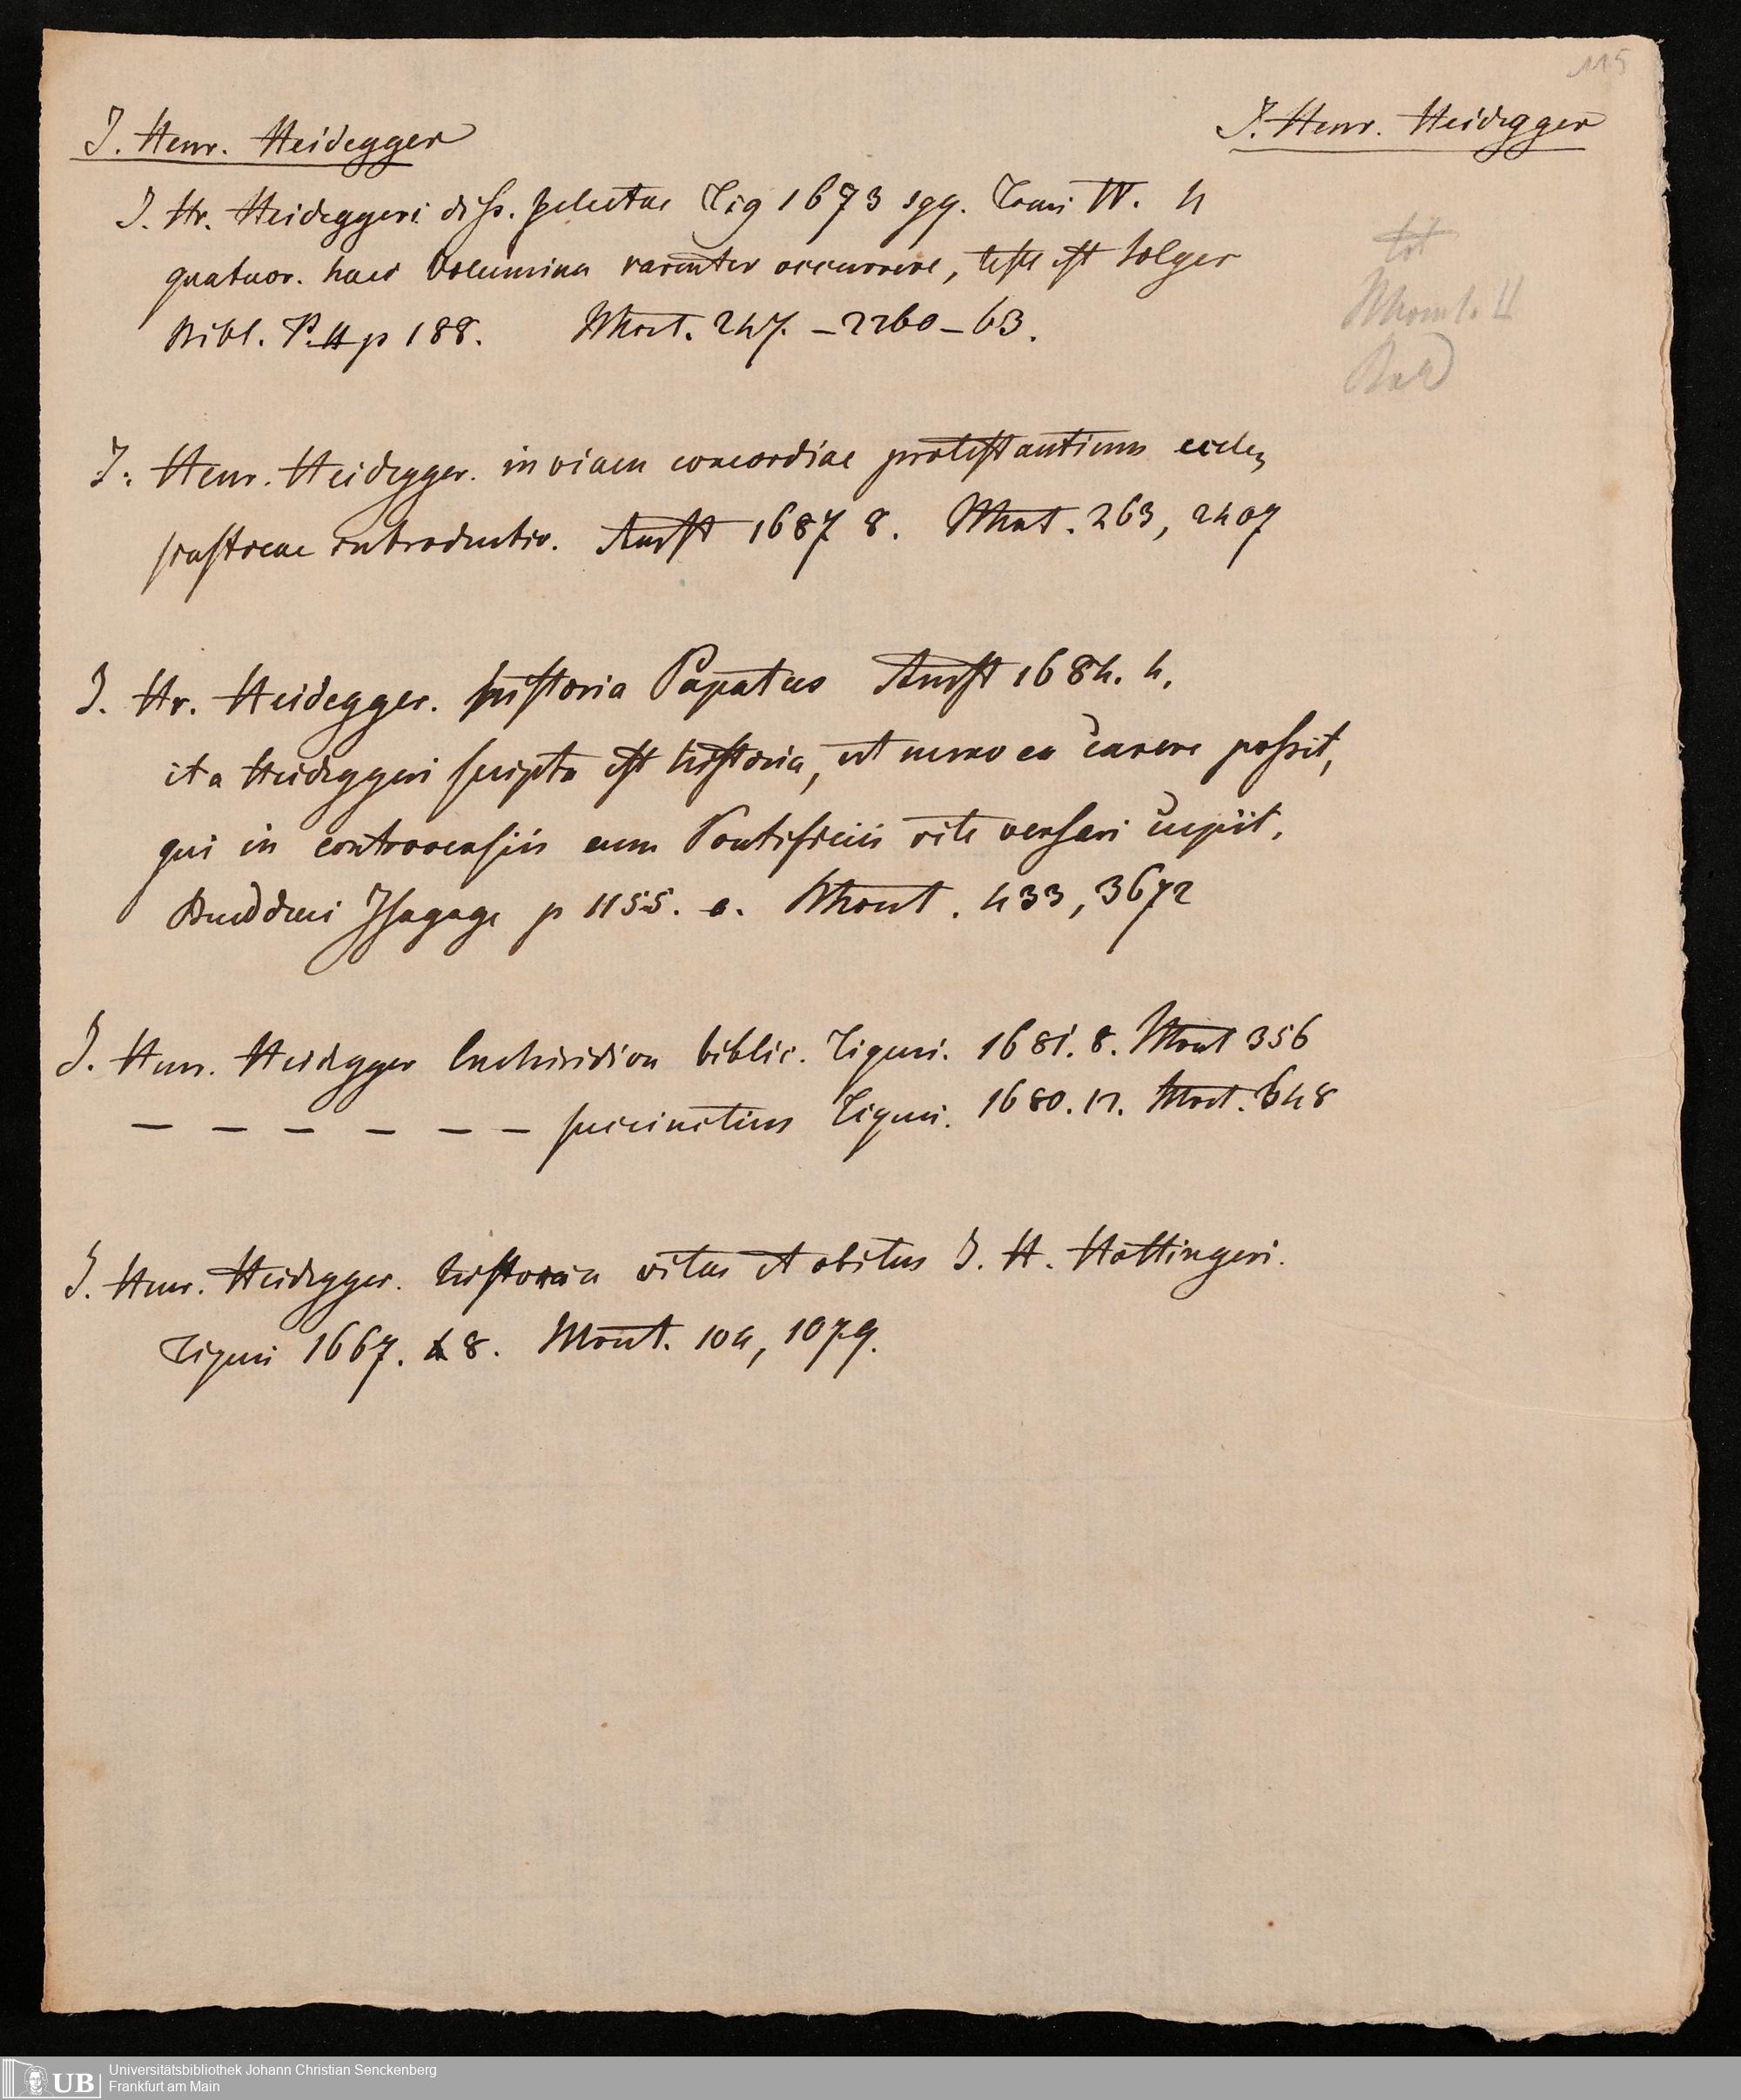 115
J. Henr. Heidegger
J. Henr. Heidegger
J. Hr. Heideggeri diss. selectae Tig 1673 sqq. Tomi IV. 4
quatuor. haec volumina rarenter occurrere, teste est Solger
Bibl. P. II p 188. Mont. 247. – 2260 – 63.
tot
J. Henr. Heidegger. in viam concordiae protestantium eccle,
siasticae introductio. Amst 1687 8. Mont. 263, 2407
J. Hr. Heidegger. historia Papatus Amst 1684. 4.
ita Heideggeri scripta est historia, ut nemo ea carere possit,
qui in controversiis cum Pontificiis rite versari cupiit.
Buddaei Isagoge p 1155. a. Mont. 433, 3672
J. Henr. Heidegger Enchiridion biblic. Tiguri. 1681. 8. Mont 356
– – – – – – succinctius Tiguri. 1680. 12. Mont. 648
J. Henr. Heidegger. historia vitae et obitus J. H. Hottingeri.
Tiguri 1667. 8. Mont. 104, 1079.
UB Universitätsbibliothek Johann Christian Senckenberg
Frankfurt am Main